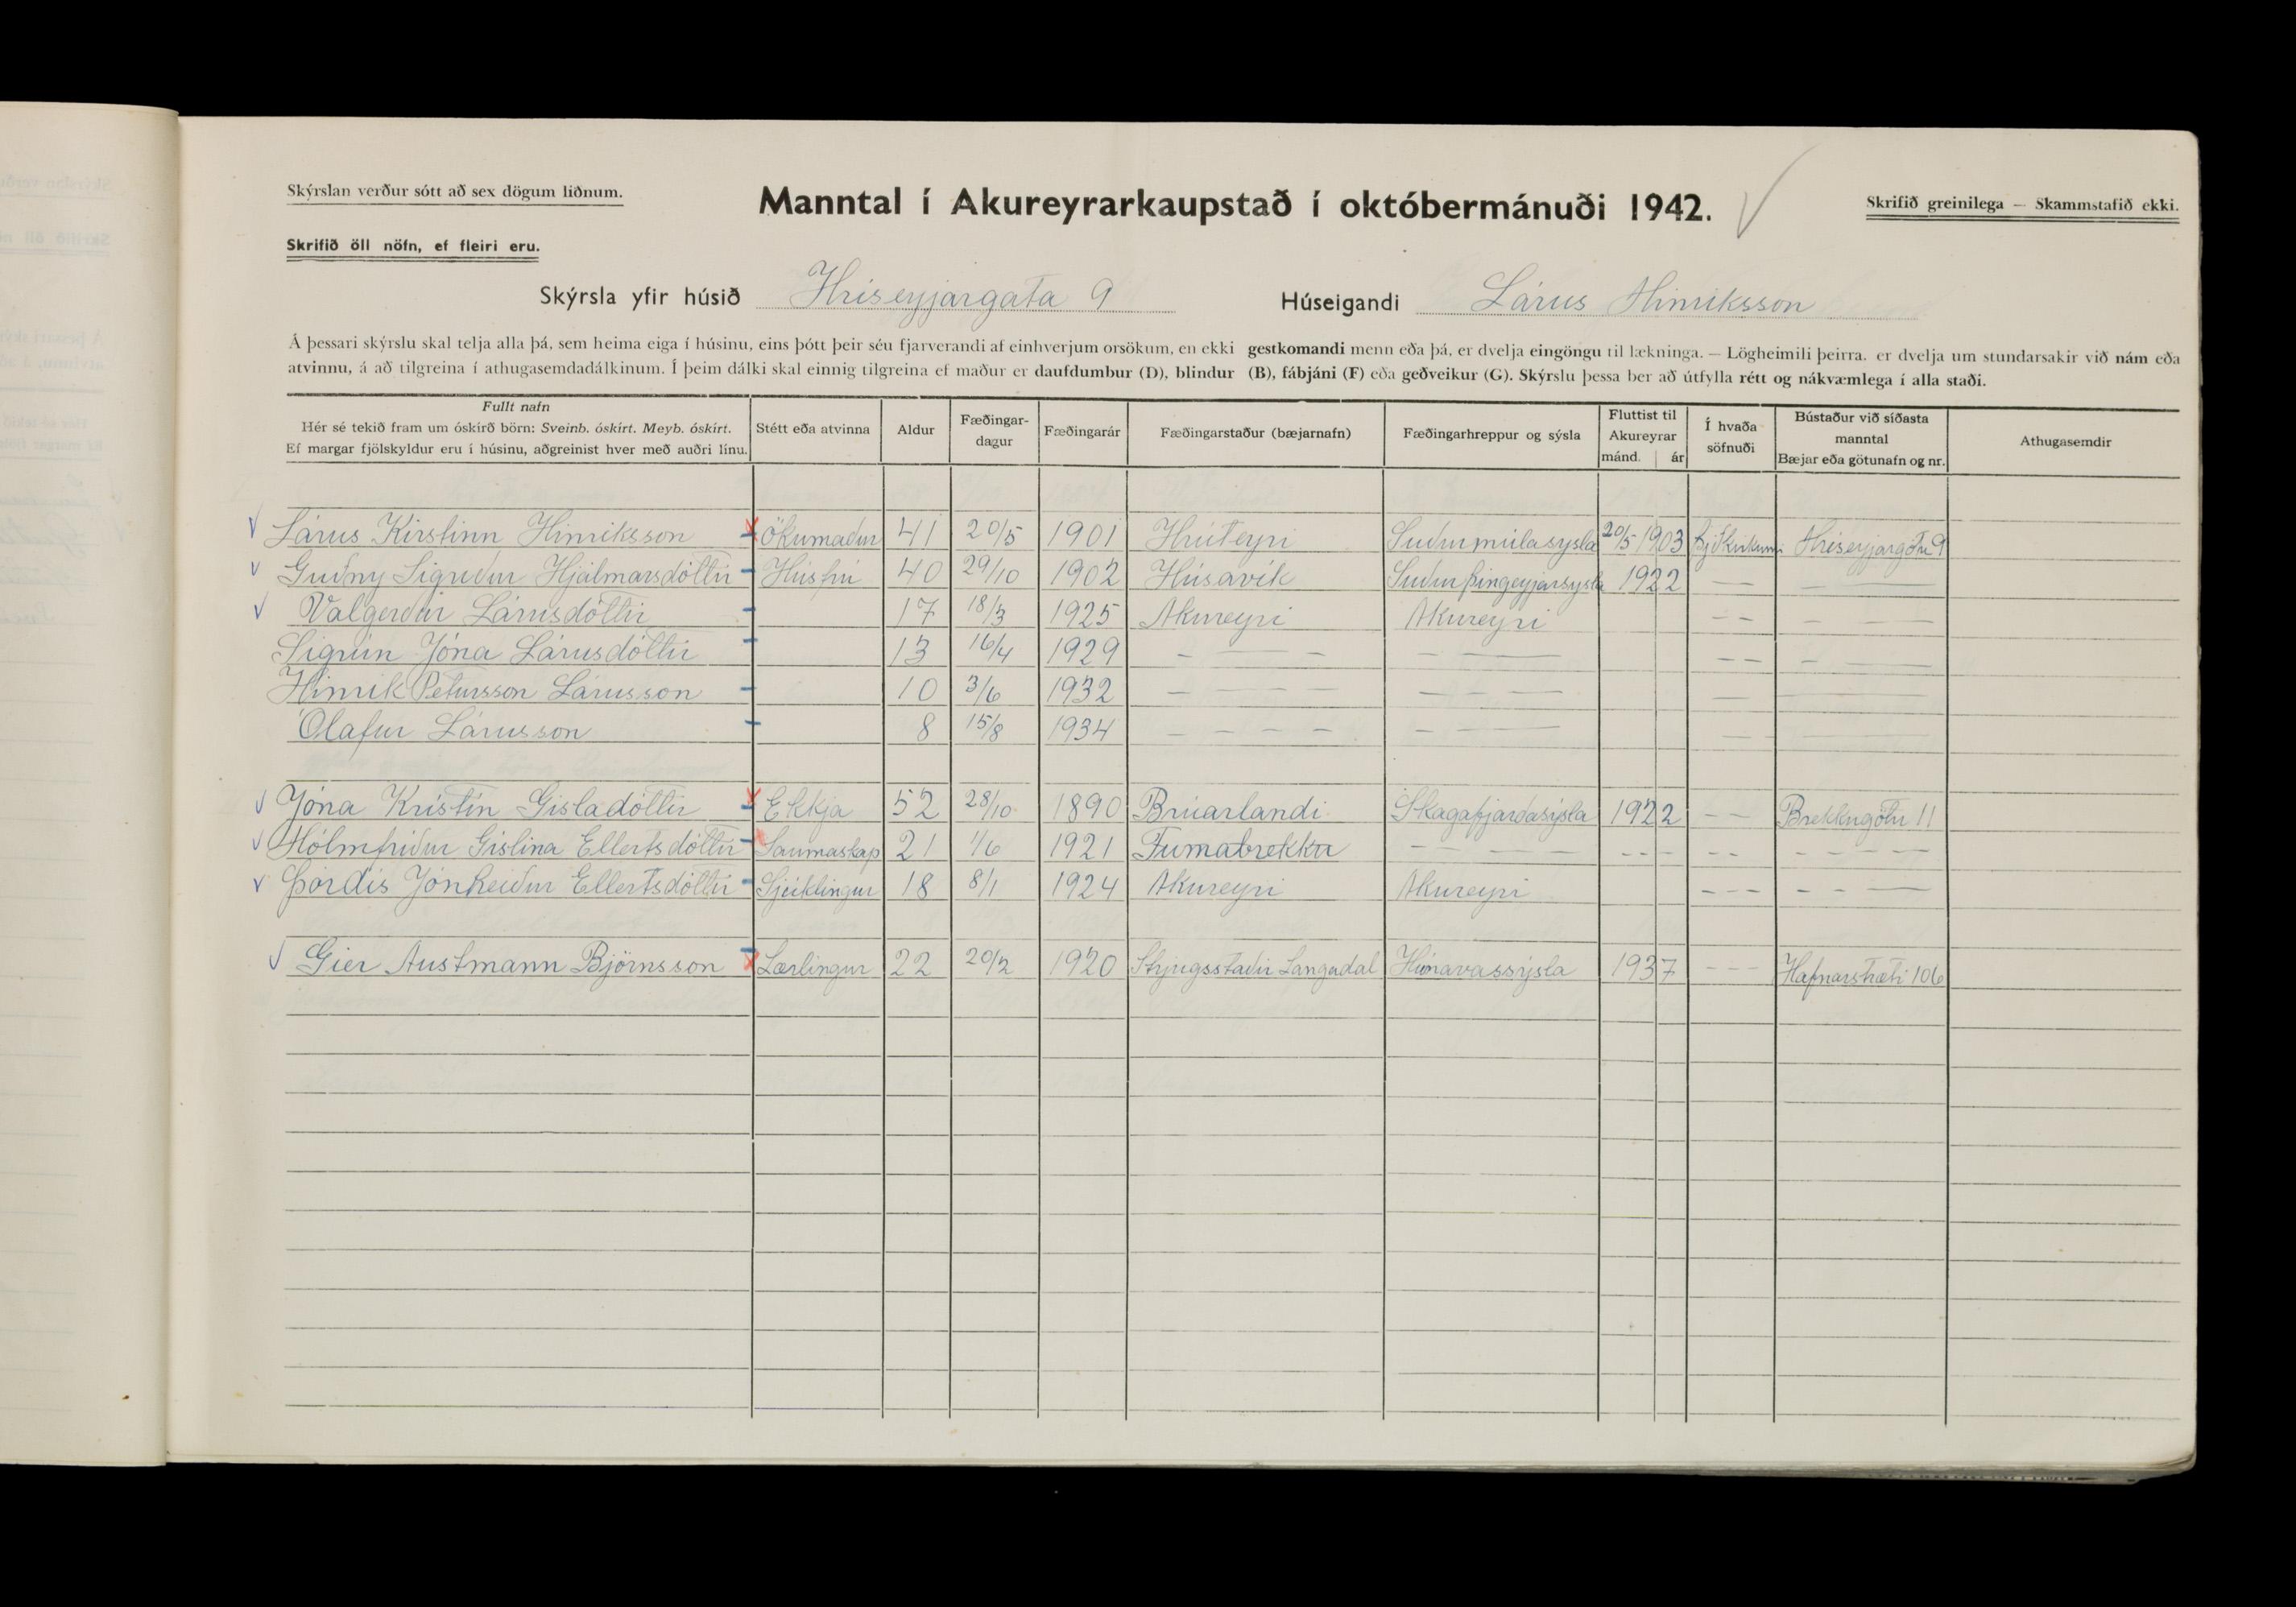 Skýrslan verður sótt að sex dögum liðnum.
Manntal í Akureyrarkaupstað í októbermánuði 1942.
Skrifið greinilega — Skammstafið ekki.
Skrifið öll nöfn, ef fleiri eru.
Skýrsla yfir húsið Hríseyjargata 9 Húseigandi Lárus Hinriksson
Á þessari skýrslu skal telja alla þá, sem heima eiga í húsinu, eins þótt þeir séu fjarverandi af einhverjum orsökum, en ekki gestkomandi menn eða þá, er dvelja eingöngu til lækninga. — Lögheimili þeirra, er dvelja um stundarsakir við nám eða
atvinnu, á að tilgreina í athugasemdadálkinum. Í þeim dálki skal einnig tilgreina ef maður er daufdumbur (D), blindur (B), fábjáni (F) eða geðveikur (G). Skýrslu þessa ber að útfylla rétt og nákvæmlega í alla staði.
Fullt nafn
Hér sé tekið fram um óskírð börn: Sveinb. óskírt. Meyb. óskírt.
Ef margar fjölskyldur eru í húsinu, aðgreinist hver með auðri línu.
Stétt eða atvinna
Aldur
Fæðingar-
dagur
Fæðingarár
Fæðingarstaður (bæjarnafn)
Fæðingarhreppur og sýsla
Fluttist til
Akureyrar
mánd. ár
Í hvaða
söfnuði
Bústaður við síðasta
manntal
Bæjar eða götunafn og nr.
Athugasemdir
Lárus Kirstinn Hinriksson Ökumaður 41 20/5 1901 Hrúteyri Suðurmúlasysla 20/5 1903 Hríseyjargötu 9
Guðny Sigriður Hjálmarsdóttir Húsfrú 40 29/10 1902 Húsavík Suðurþingeyjarsysla 1922 — — —
Valgerður Lárusdóttir 17 18/3 1925 Akureyri Akureyri — — — — —
Sigrún Jóna Lárusdóttir 13 16/4 1929 — — — — — — — — —
Hinrik Petursson Lárusson 10 3/6 1932 — — — — — — — — —
Ólafur Lárusson 8 15/8 1934 — — — — — — — — —
Jóna Kristín Gisladóttir Ekkja 52 28/10 1890 Brúarlandi Skagafjarðasýsla 1922 — — Brekkugötu 11
Hólmfriður Gislina Ellertsdóttir Saumaskap 21 1/6 1921 — — — — — — — — — — — —
Þórdís Jónheiður Ellertsdóttir Sjúklingur 18 8/1 1924 Akureyri Akureyri — — — — — —
Gier Austmann Björnsson Lærlingur 22 20/2 1920 Langadal Húnavassýsla 1937 — — — Hafnarstræti 106